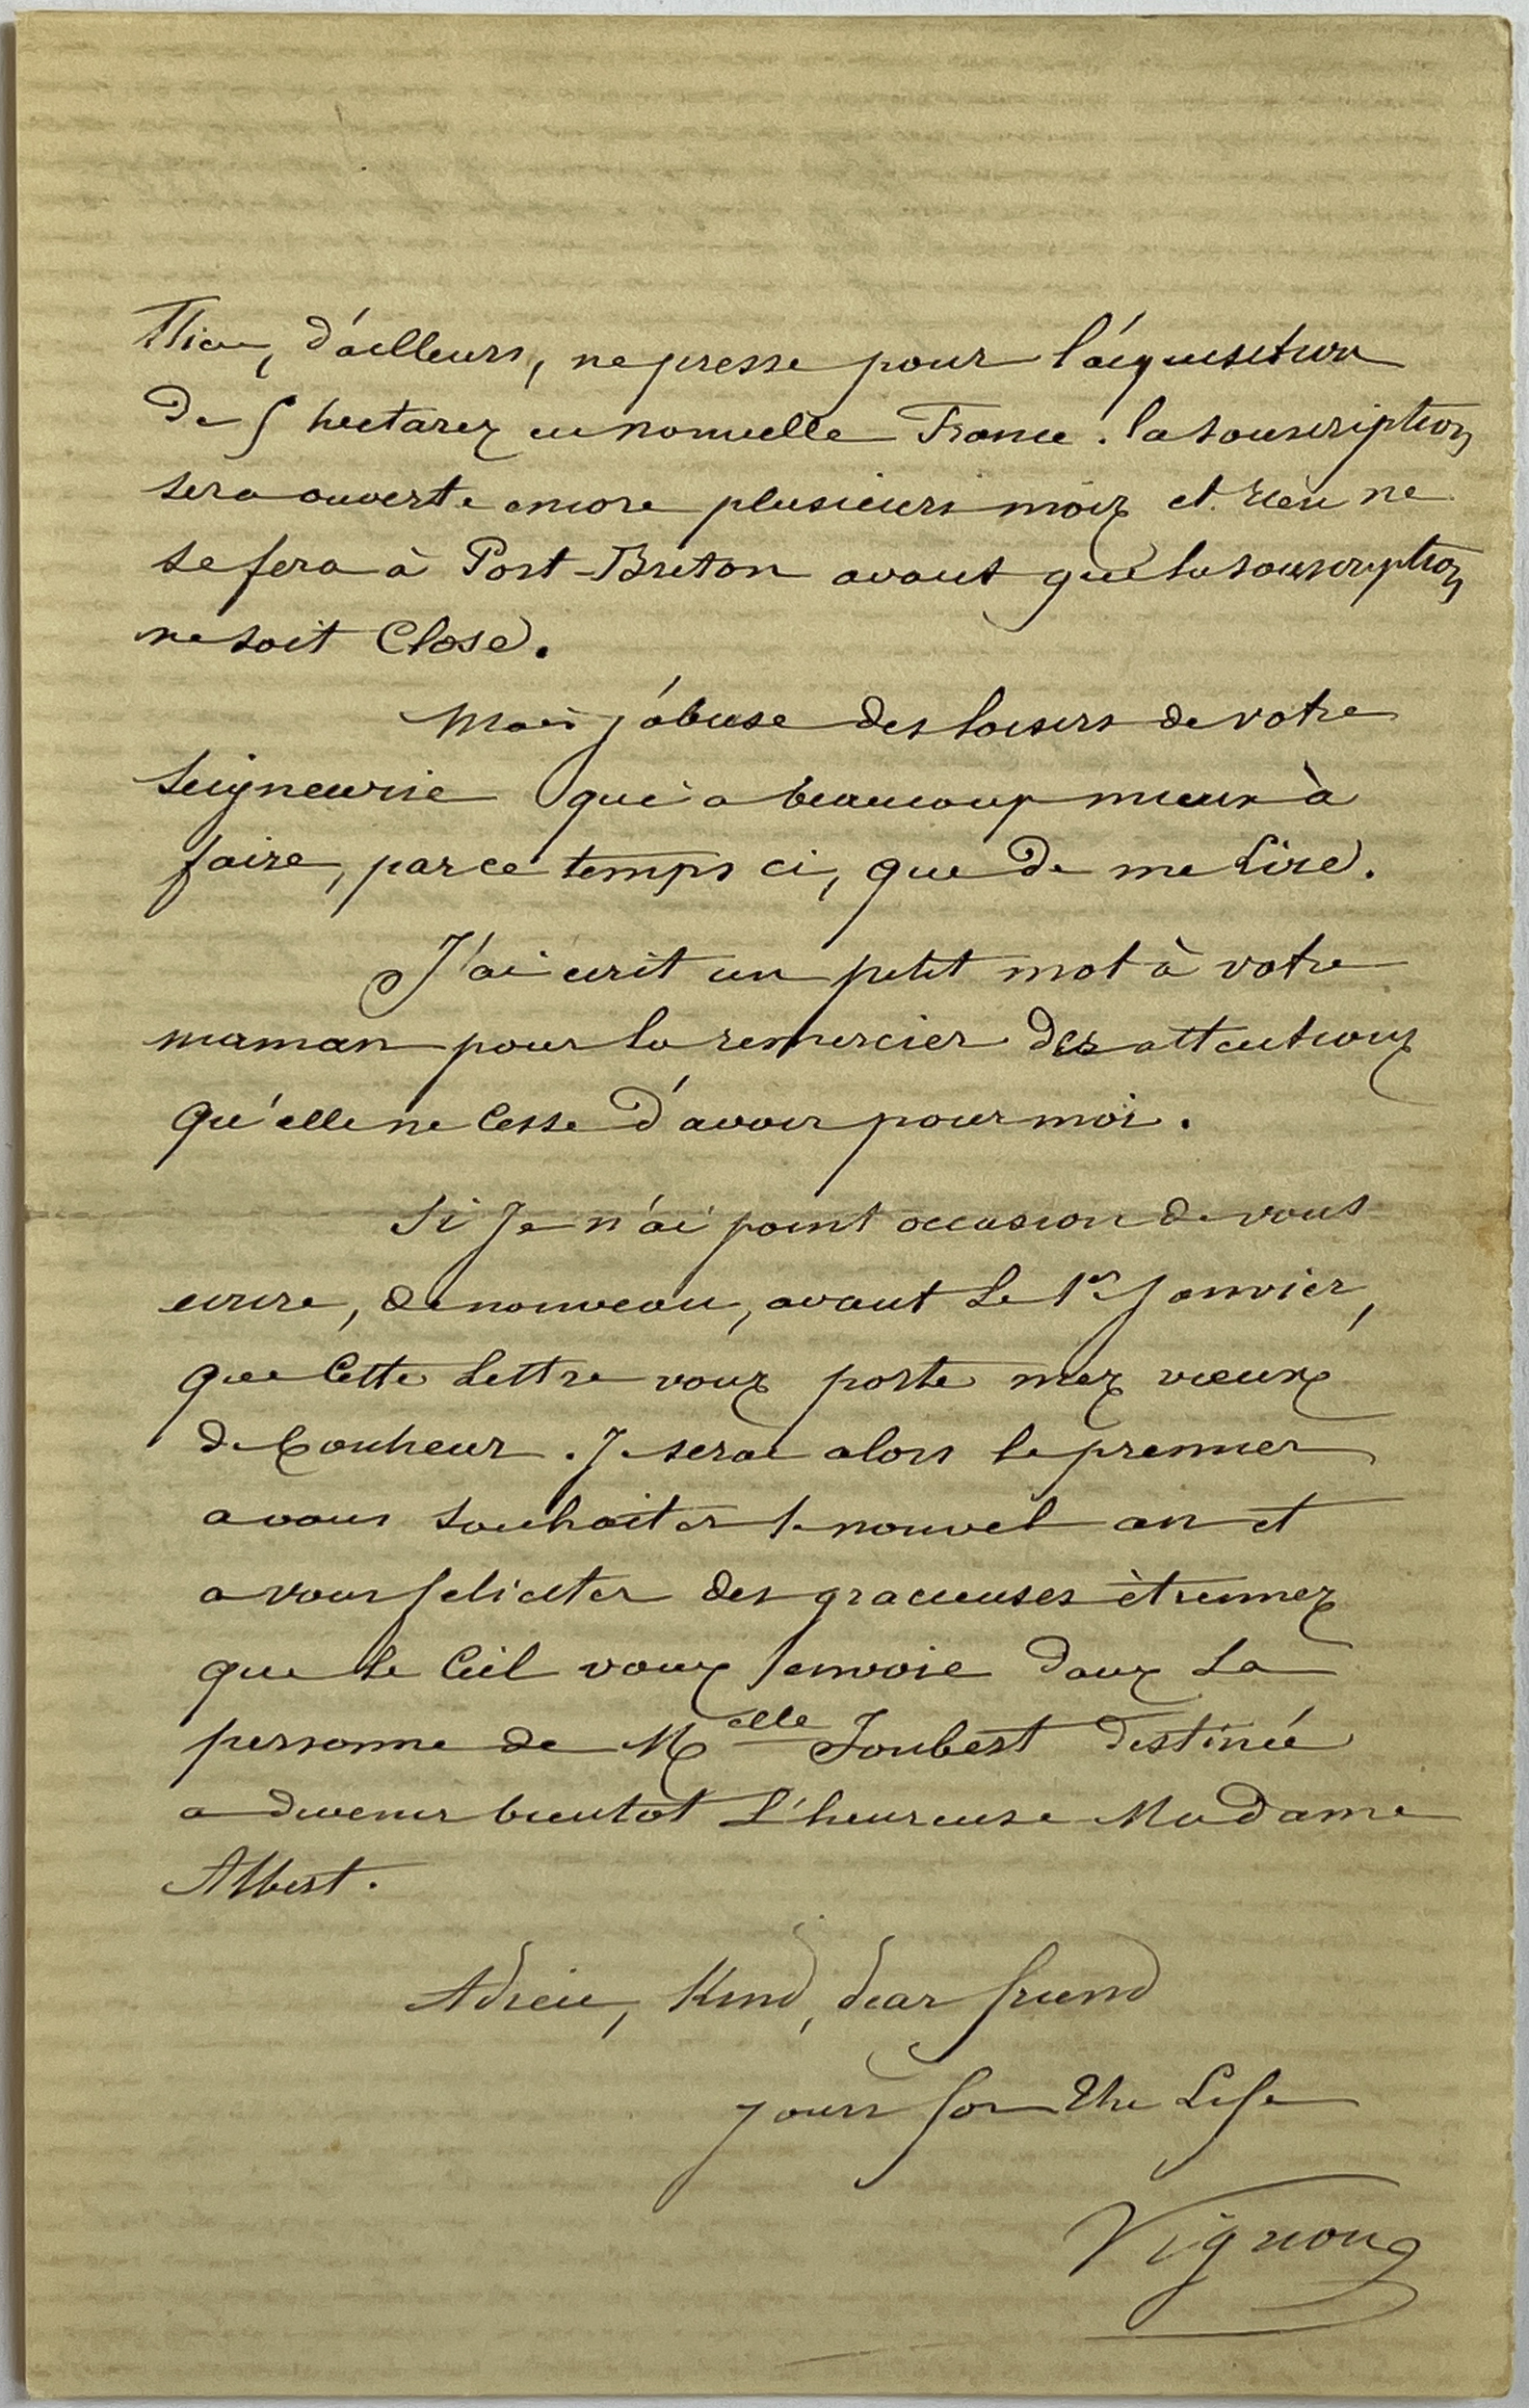 Rien, d'ailleurs, ne presse pour l'acquisition
de 5 hectares en nouvelle France. la souscription
sera ouverte encore plusieurs mois et rien ne
se fera à Port-Breton avant que la souscription
ne soit Close.
Mais j'abuse des loisirs de votre
Seigneurie qui a beaucoup mieux à
faire, par ce temps ci, que de me Lire.
J'ai ecrit un petit mot à votre
maman pour la remercier des attentions
qu'elle ne Cesse d'avoir pour moi.
Si Je n'ai point occasion de vous
ecrire, de nouveau, avant Le 1er Janvier,
que Cette Lettre vous porte mes vœux
de bonheur. Je serai alors le premier
a vous souhaiter le nouvel an et
a vous feliciter des gracieuses ètrennes
que le Ciel vous envoie dans La
personne de Melle Joubert destinée
a devenir bientot L'heureuse Madame
Albert.
Adieu, Kind, dear friend
yours for the Life
Vignon